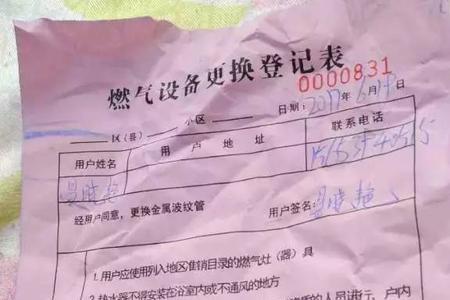 燃气设备更换登记表
0000831
区(县) 小区 日期: 2017年6月
用户姓名 用户地址 联系电话
吴晓艳
经用户同意,更换金属波纹管 用户签名: 吴晓艳
1.用户应使用列入地区准销目录的燃气灶(器)具
2.热水器不得安装在浴室内或不通风的地方
的人员进行,户内